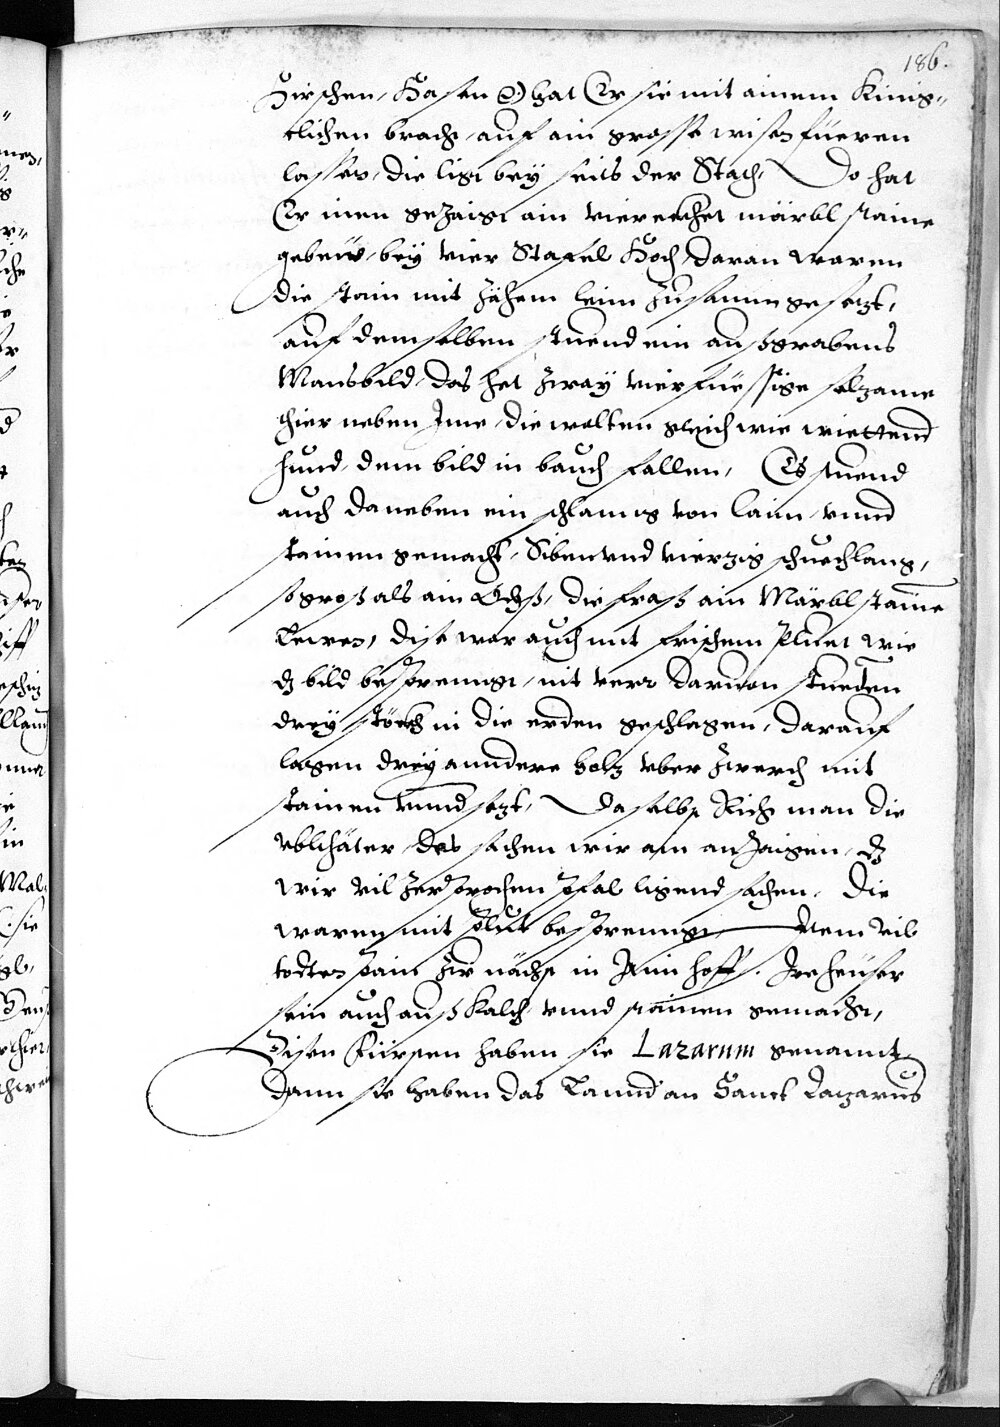 186.
Hirschen, Hasen hat Er sie mit ainem Kinig-
clichen bracht auf ain grosse wisen füeren
lassen, die ligt bey seits der Stat, Do hat
Er inen gezaigt ain viereckhet märbl staine
gebeüw, bey vier Stafel Hoch, daran waren
die stain mit zähem leim zusamm gesetzt,
auf demselben stuend ein außgrabens
Mansbild, das het zway vierfüessige selzame
thier neben Ime, die wolten gleich wie wiettend
hund, dem bild in bauch fallen, Es stuend
auch daneben ein schlanng von laim, vnnd
stainen gemacht, Siben vnd vierzig schuech lang,
so groß als ain Ochß, die fraß ain Märblstaine
Lewen, dise war auch mit frischem pluet wie
dz bild besprenngt, nit verr daruon stuenden
drey stöckh in die erden geschlagen, darauf
lagen drey anndere holz vber zwerch mit
stainen vnndsetzt, Daselbst Richt man die
vblthäter, des sachen wir ain anzaigen, dz
wir vil zerprochen pfäl ligend sachen. Die
waren mit pluet besprenngt, Item vil
todten pain zu nächst in Irm hoff. Ire heüser
sein auch auß Kalch vnnd stainen gemacht,
Disen Fürsten haben sie Lazarum genannt
dann sie haben das Lannd an Sanct Lazarus